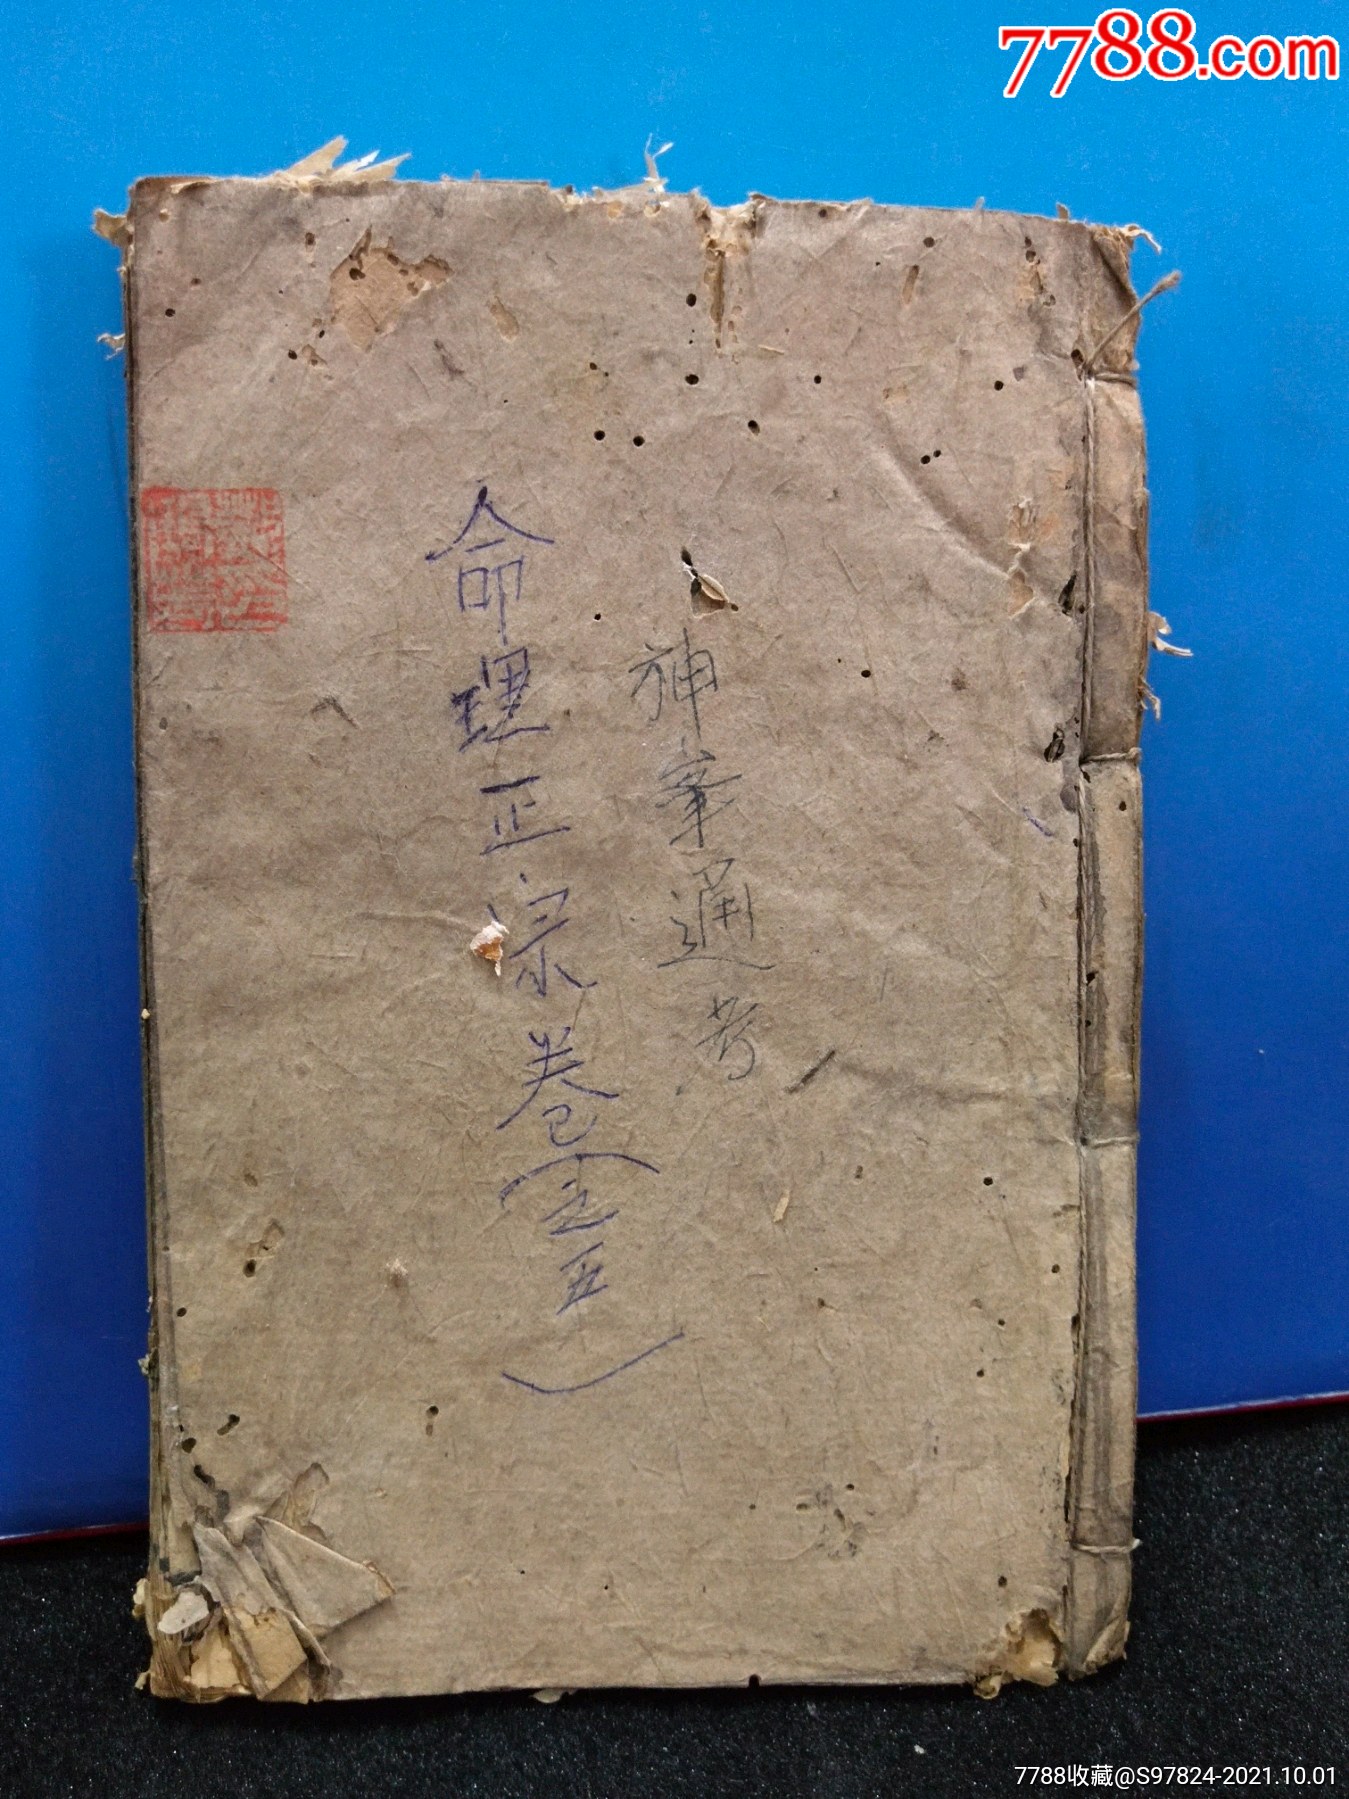 7788.com
神峯通考
命理正宗卷(之五)
7788收藏@S97824-2021.10.01